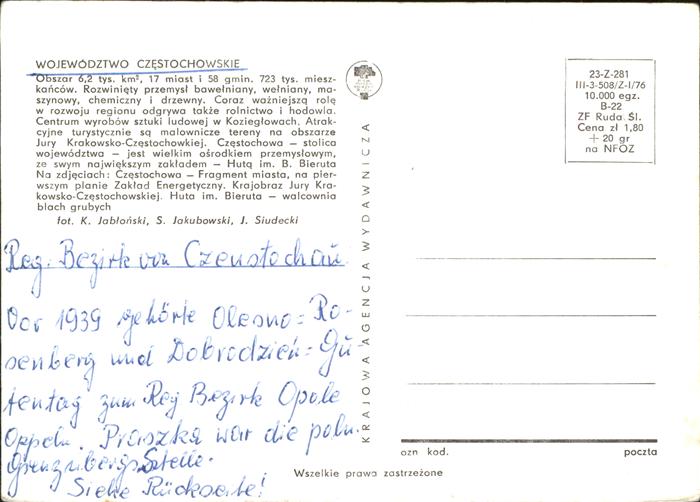 WOJEWÓDZTWO CZĘSTOCHOWSKIE
Obszar 6,2 tys. km², 17 miast i 58 gmin. 723 tys. miesz-
kańców. Rozwinięty przemysł bawełniany, wełniany, ma-
szynowy, chemiczny i drzewny. Coraz ważniejszą rolę
w rozwoju regionu odgrywa także rolnictwo i hodowla.
Centrum wyrobów sztuki ludowej w Koziegłowach. Atrak-
cyjne turystycznie są malownicze tereny na obszarze
Jury Krakowsko-Częstochowkiej. Częstochowa – stolica
województwa – jest wielkim ośrodkiem przemysłowym,
ze swym największym zakładem – Hutą im. B. Bieruta
Na zdjęciach: Częstochowa – Fragment miasta, na pier-
wszym planie Zakład Energetyczny. Krajobraz Jury Kra-
kowsko-Częstochowskiej. Huta im. Bieruta – walcownia
blach grubych
fot. K. Jabłoński, S. Jakubowski, J. Siudecki
Reg. Bezirk von Czenstochau
Vor 1939 gehörte Olesno = Ro-
senberg und Dobrodzień = Gu-
tentag zum Reg Bezirk Opole
Oppeln. Praszka war die poln.
Siehe Rückseite!
KRAJOWA AGENCJA WYDAWNICZA
23-Z-281
III-3-508/Z-I/76
10.000 egz.
B-22
ZF Ruda Śl.
Cena zł 1,80
+ 20 gr
na NFOZ
ozn kod. poczta
Wszelkie prawa zastrzeżone